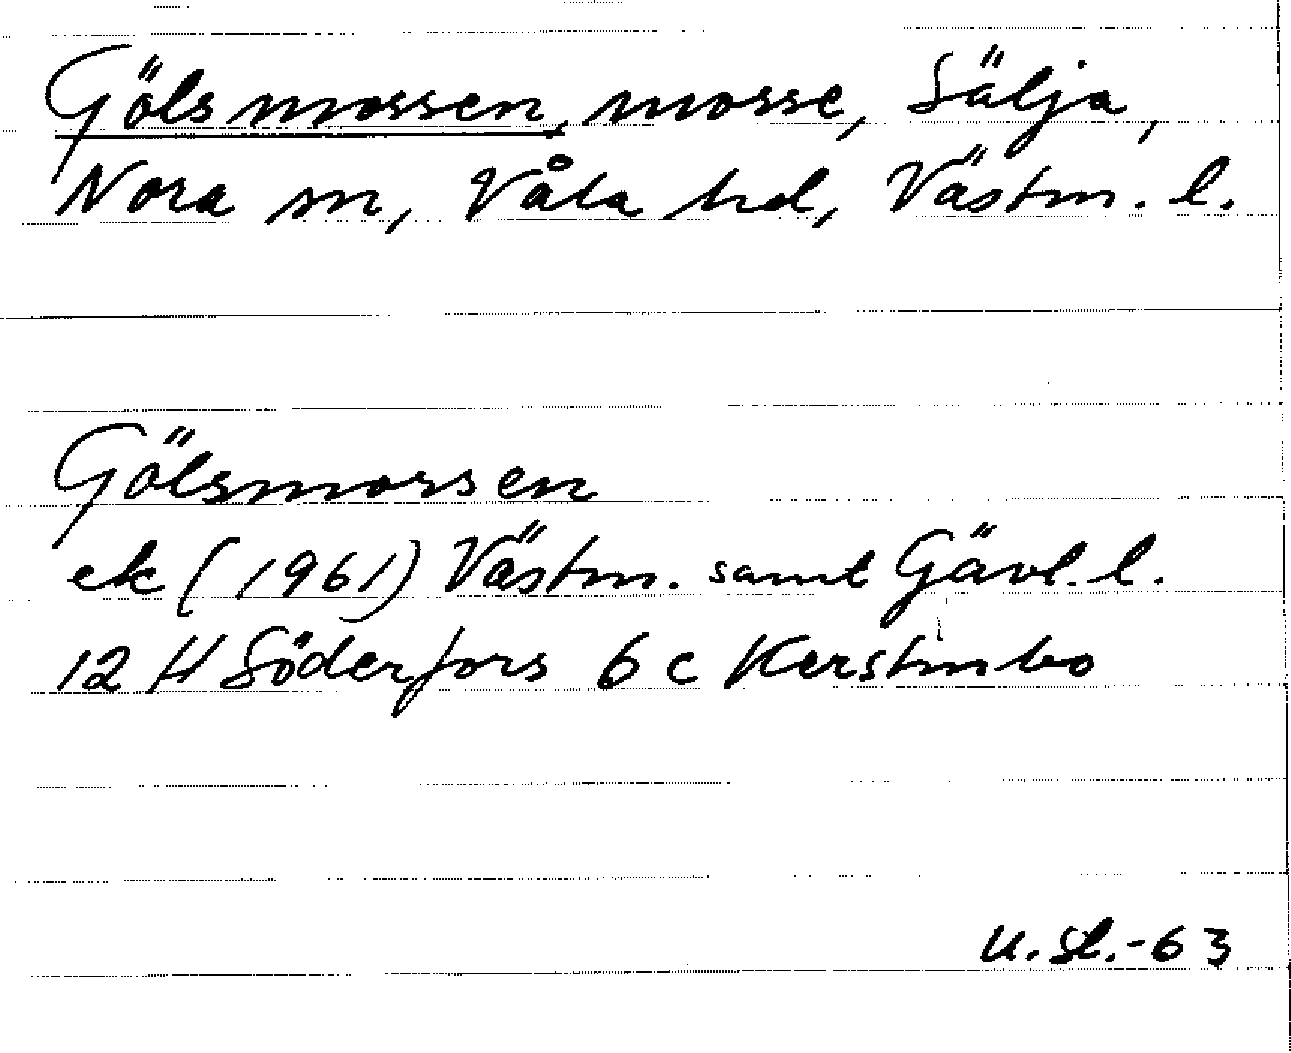 Gölsmossen, mosse, Sälja,
Nora sn, Våla hd, Västm. l.
Gölsmossen
ek (1961) Västm. samt Gävl. l.
12 H Söderfors 6 c Kerstinbo
U. SL.-63